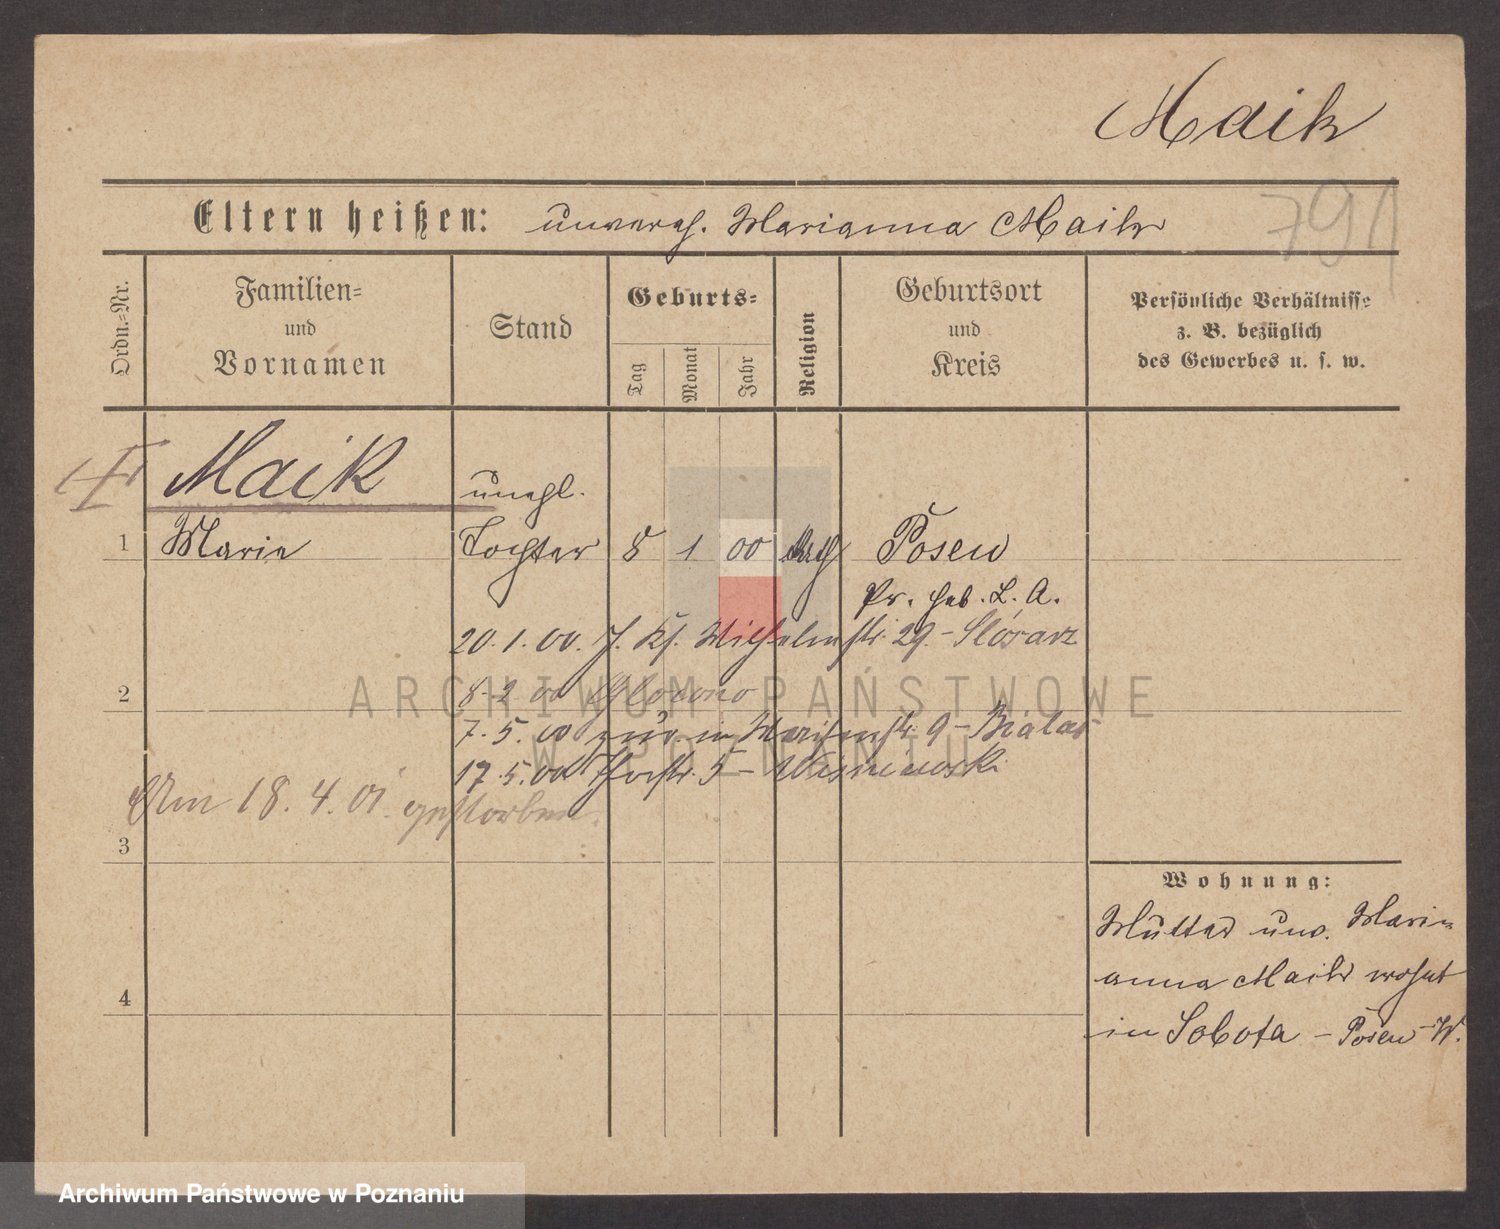 Maik
791
Eltern heißen: unverh. Marianna Maik
Ordn.-Nr.
Familien- und Vornamen
Stand
Geburts-
Tag
Monat
Jahr
Religion
Geburtsort und Kreis
Persönliche Verhältnisse
z. B. bezüglich
des Gewerbes u. s. w.
Maik
unehl.
1 Marie Tochter 8 1 00 kath Posen
Pr. Heb. L. A.
20.1.00. Wilhelmstr. 29. – Slósarz
2 8.2 00 Glowno
7.5.00 zur. in Waisenstr. 9 –
17.5.00 Thorstr. 5 –
Am 18.4.01. gestorben.
3
Wohnung:
Mutter unv. Mari-
anna Maik wohnt
in Sobota – Posen W.
4
ARCHIWUM PAŃSTWOWE
W POZNANIU
Archiwum Państwowe w Poznaniu